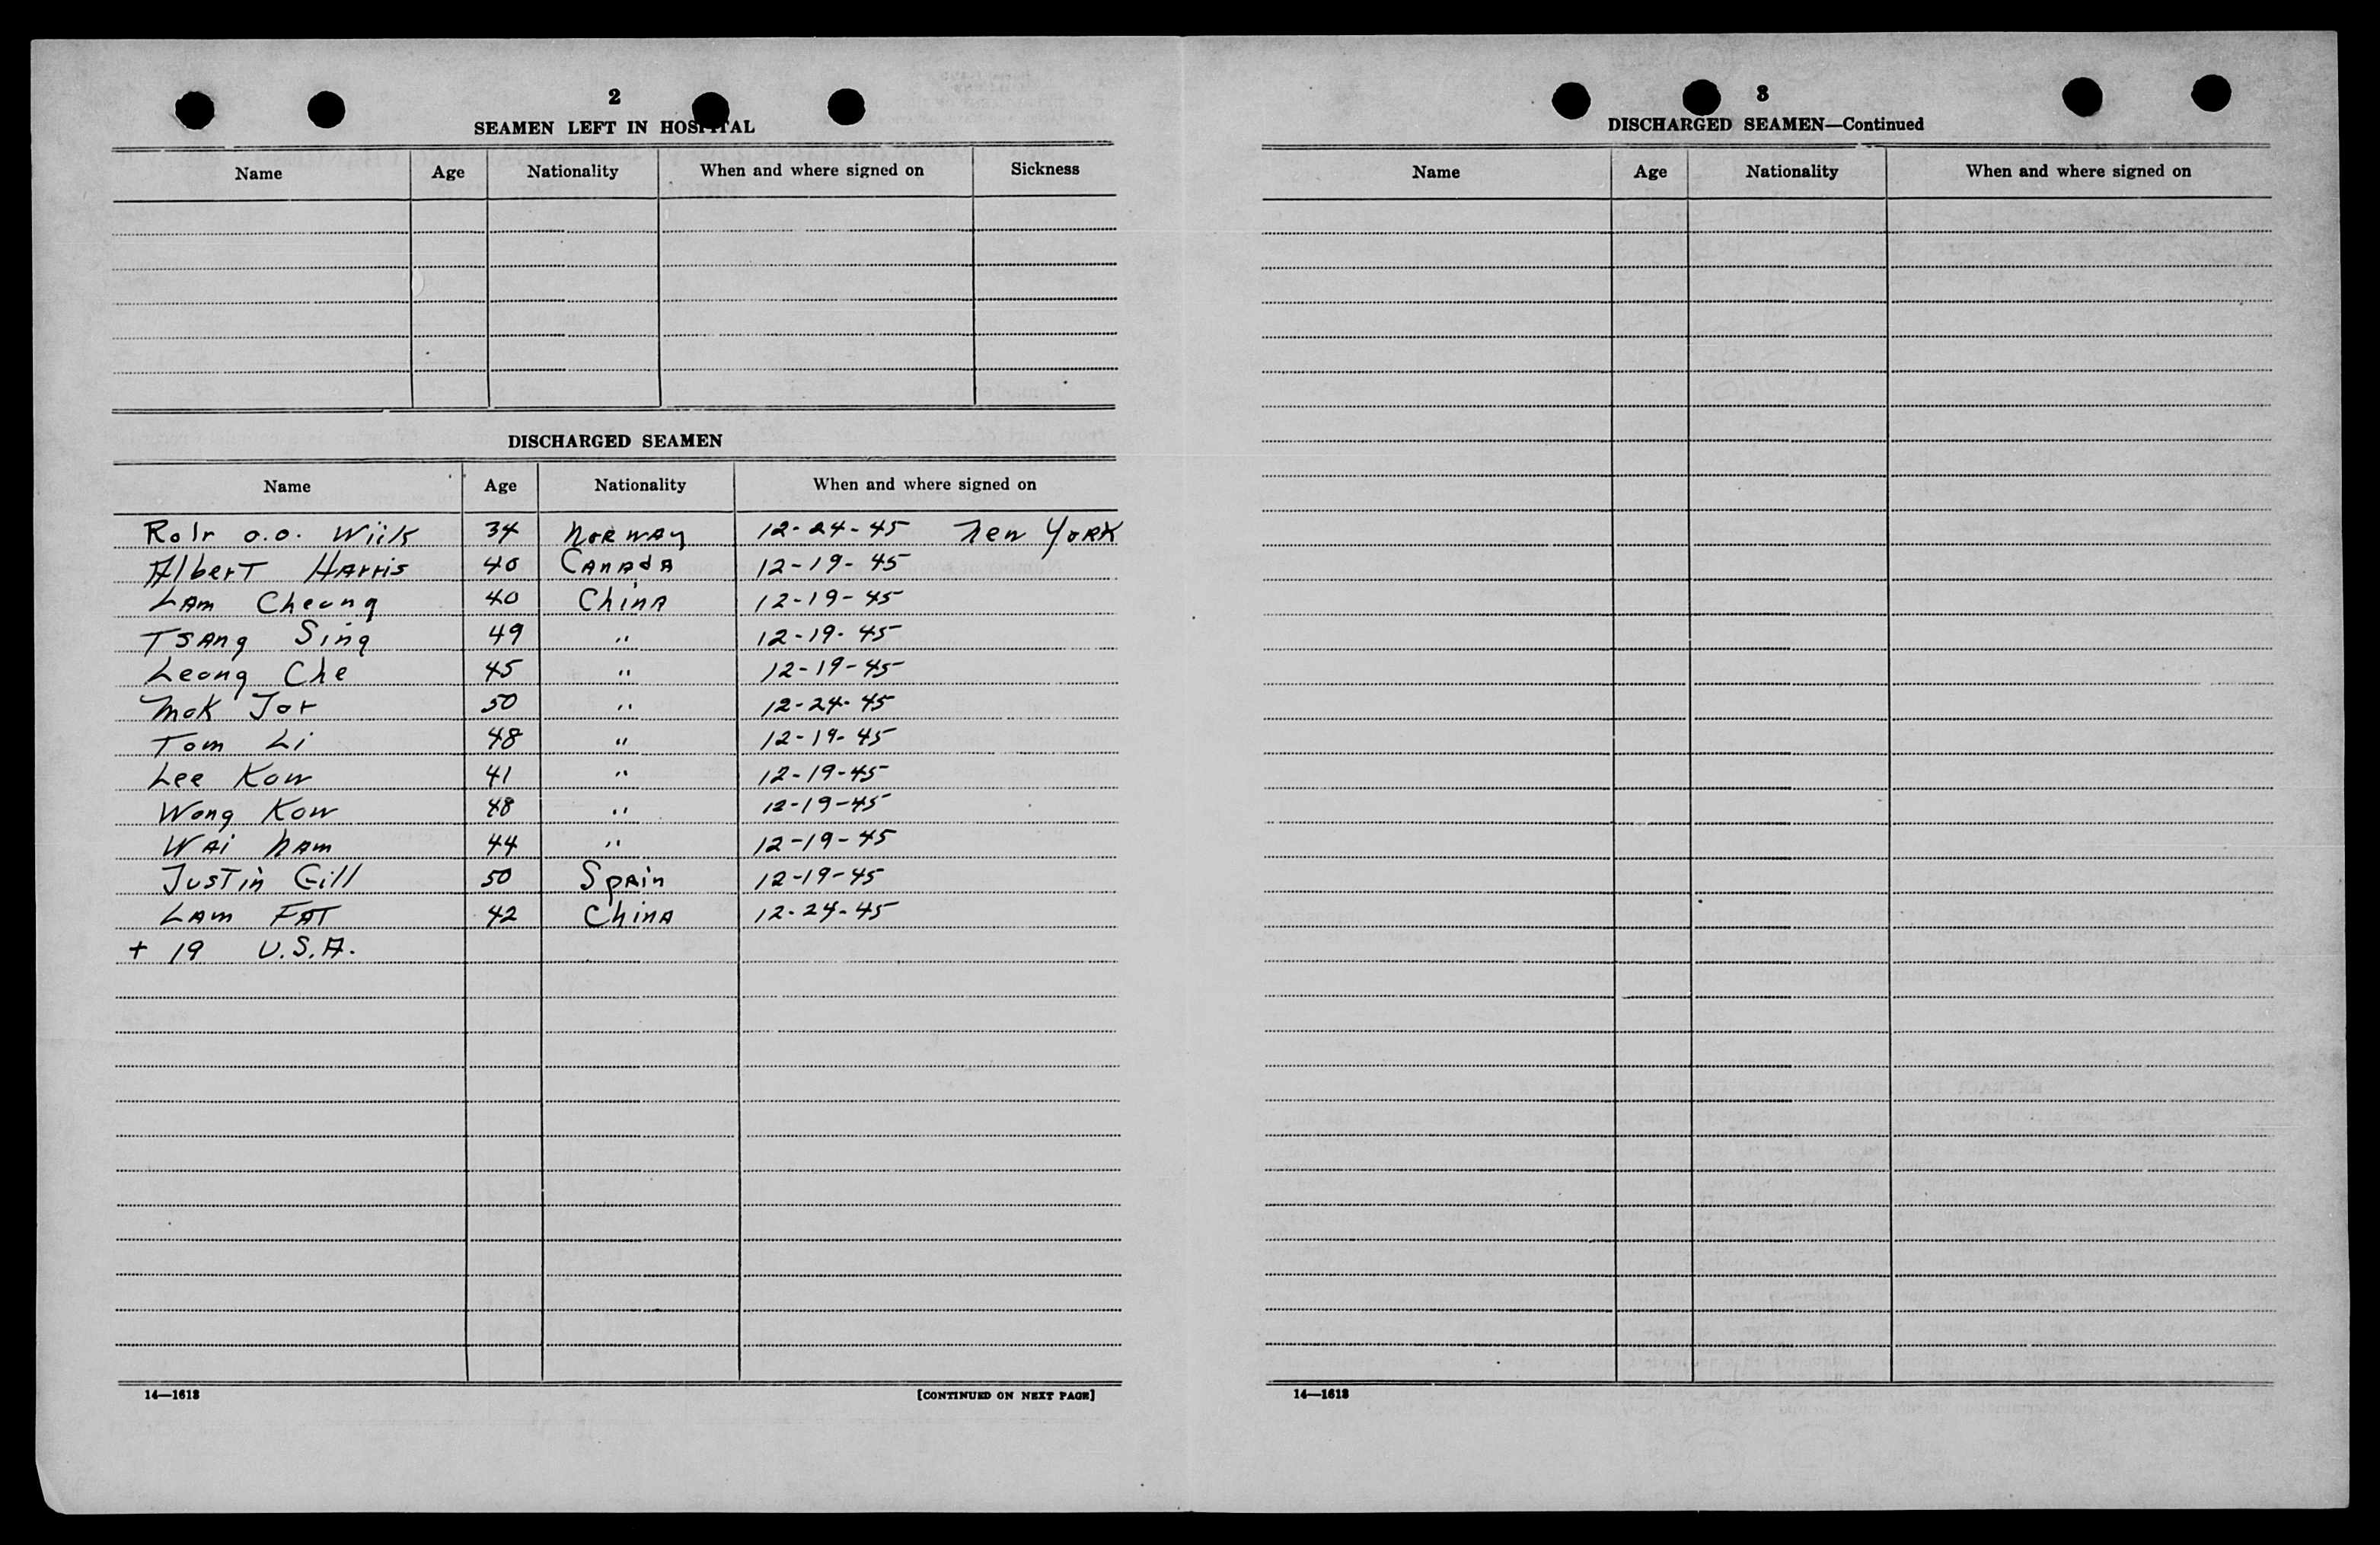 2
SEAMEN LEFT IN HOSPITAL
Name Age Nationality When and where signed on Sickness
DISCHARGED SEAMEN
Name Age Nationality When and where signed on
Rolr O.O. Wiik 34 Norway 12-24-45 New York
Albert Harris 40 Canada 12-19-45
Lam Cheung 40 China 12-19-45
Tsang Sing 49 " 12-19-45
Leong Che 45 " 12-19-45
Mok Jor 50 " 12-24-45
Tom Li 48 " 12-19-45
Lee Kow 41 " 12-19-45
Wong Kow 48 " 12-19-45
Wai Nam 44 " 12-19-45
Justin Gill 50 Spain 12-19-45
Lam Fat 42 China 12-24-45
+ 19 U.S.A.
14—1613 [CONTINUED ON NEXT PAGE]
3
DISCHARGED SEAMEN—Continued
Name Age Nationality When and where signed on
14—1613